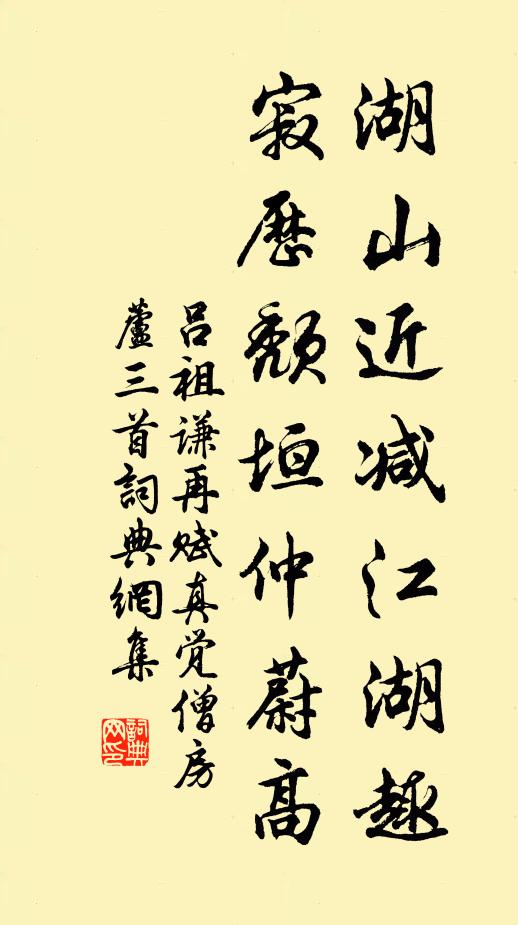 湖山近减江湖趣
寂歷頹垣仲蔚高
吕祖谦再赋真觉僧房
蘆三首詞典網集
詞典网印